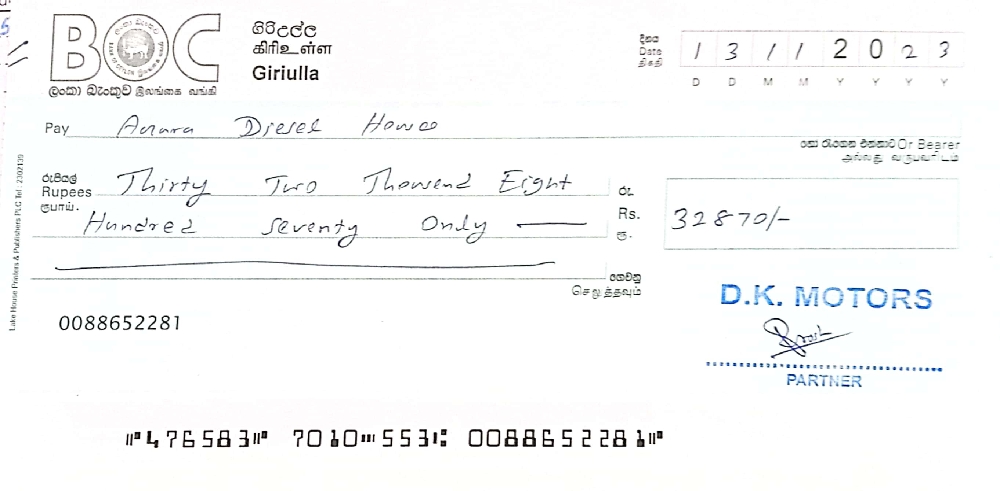 BOC
ලංකා බැංකුව இலங்கை வங்கி
ගිරිඋල්ල
கிரிஉள்ள
Giriulla
දිනය
Date
திகதி
1 3 1 1 2 0 2 3
D D M M Y Y Y Y
Pay Anura Diesel House
හෝ රැගෙන එනතාට Or Bearer
அல்லது வருபவரிடம்
රුපියල්
Rupees Thirty Two Thousend Eight
ரூபாய்.
Hundred Seventy Only
රු.
Rs. 32870/-
ரூ.
ගෙවනු
செலுத்தவும்
Lake House Printers & Publishers PLC Tel : 2302139
0088652281
D.K. MOTORS
PARTNER
⑈476583⑈ 7010⑉553⑆ 0088652281⑈